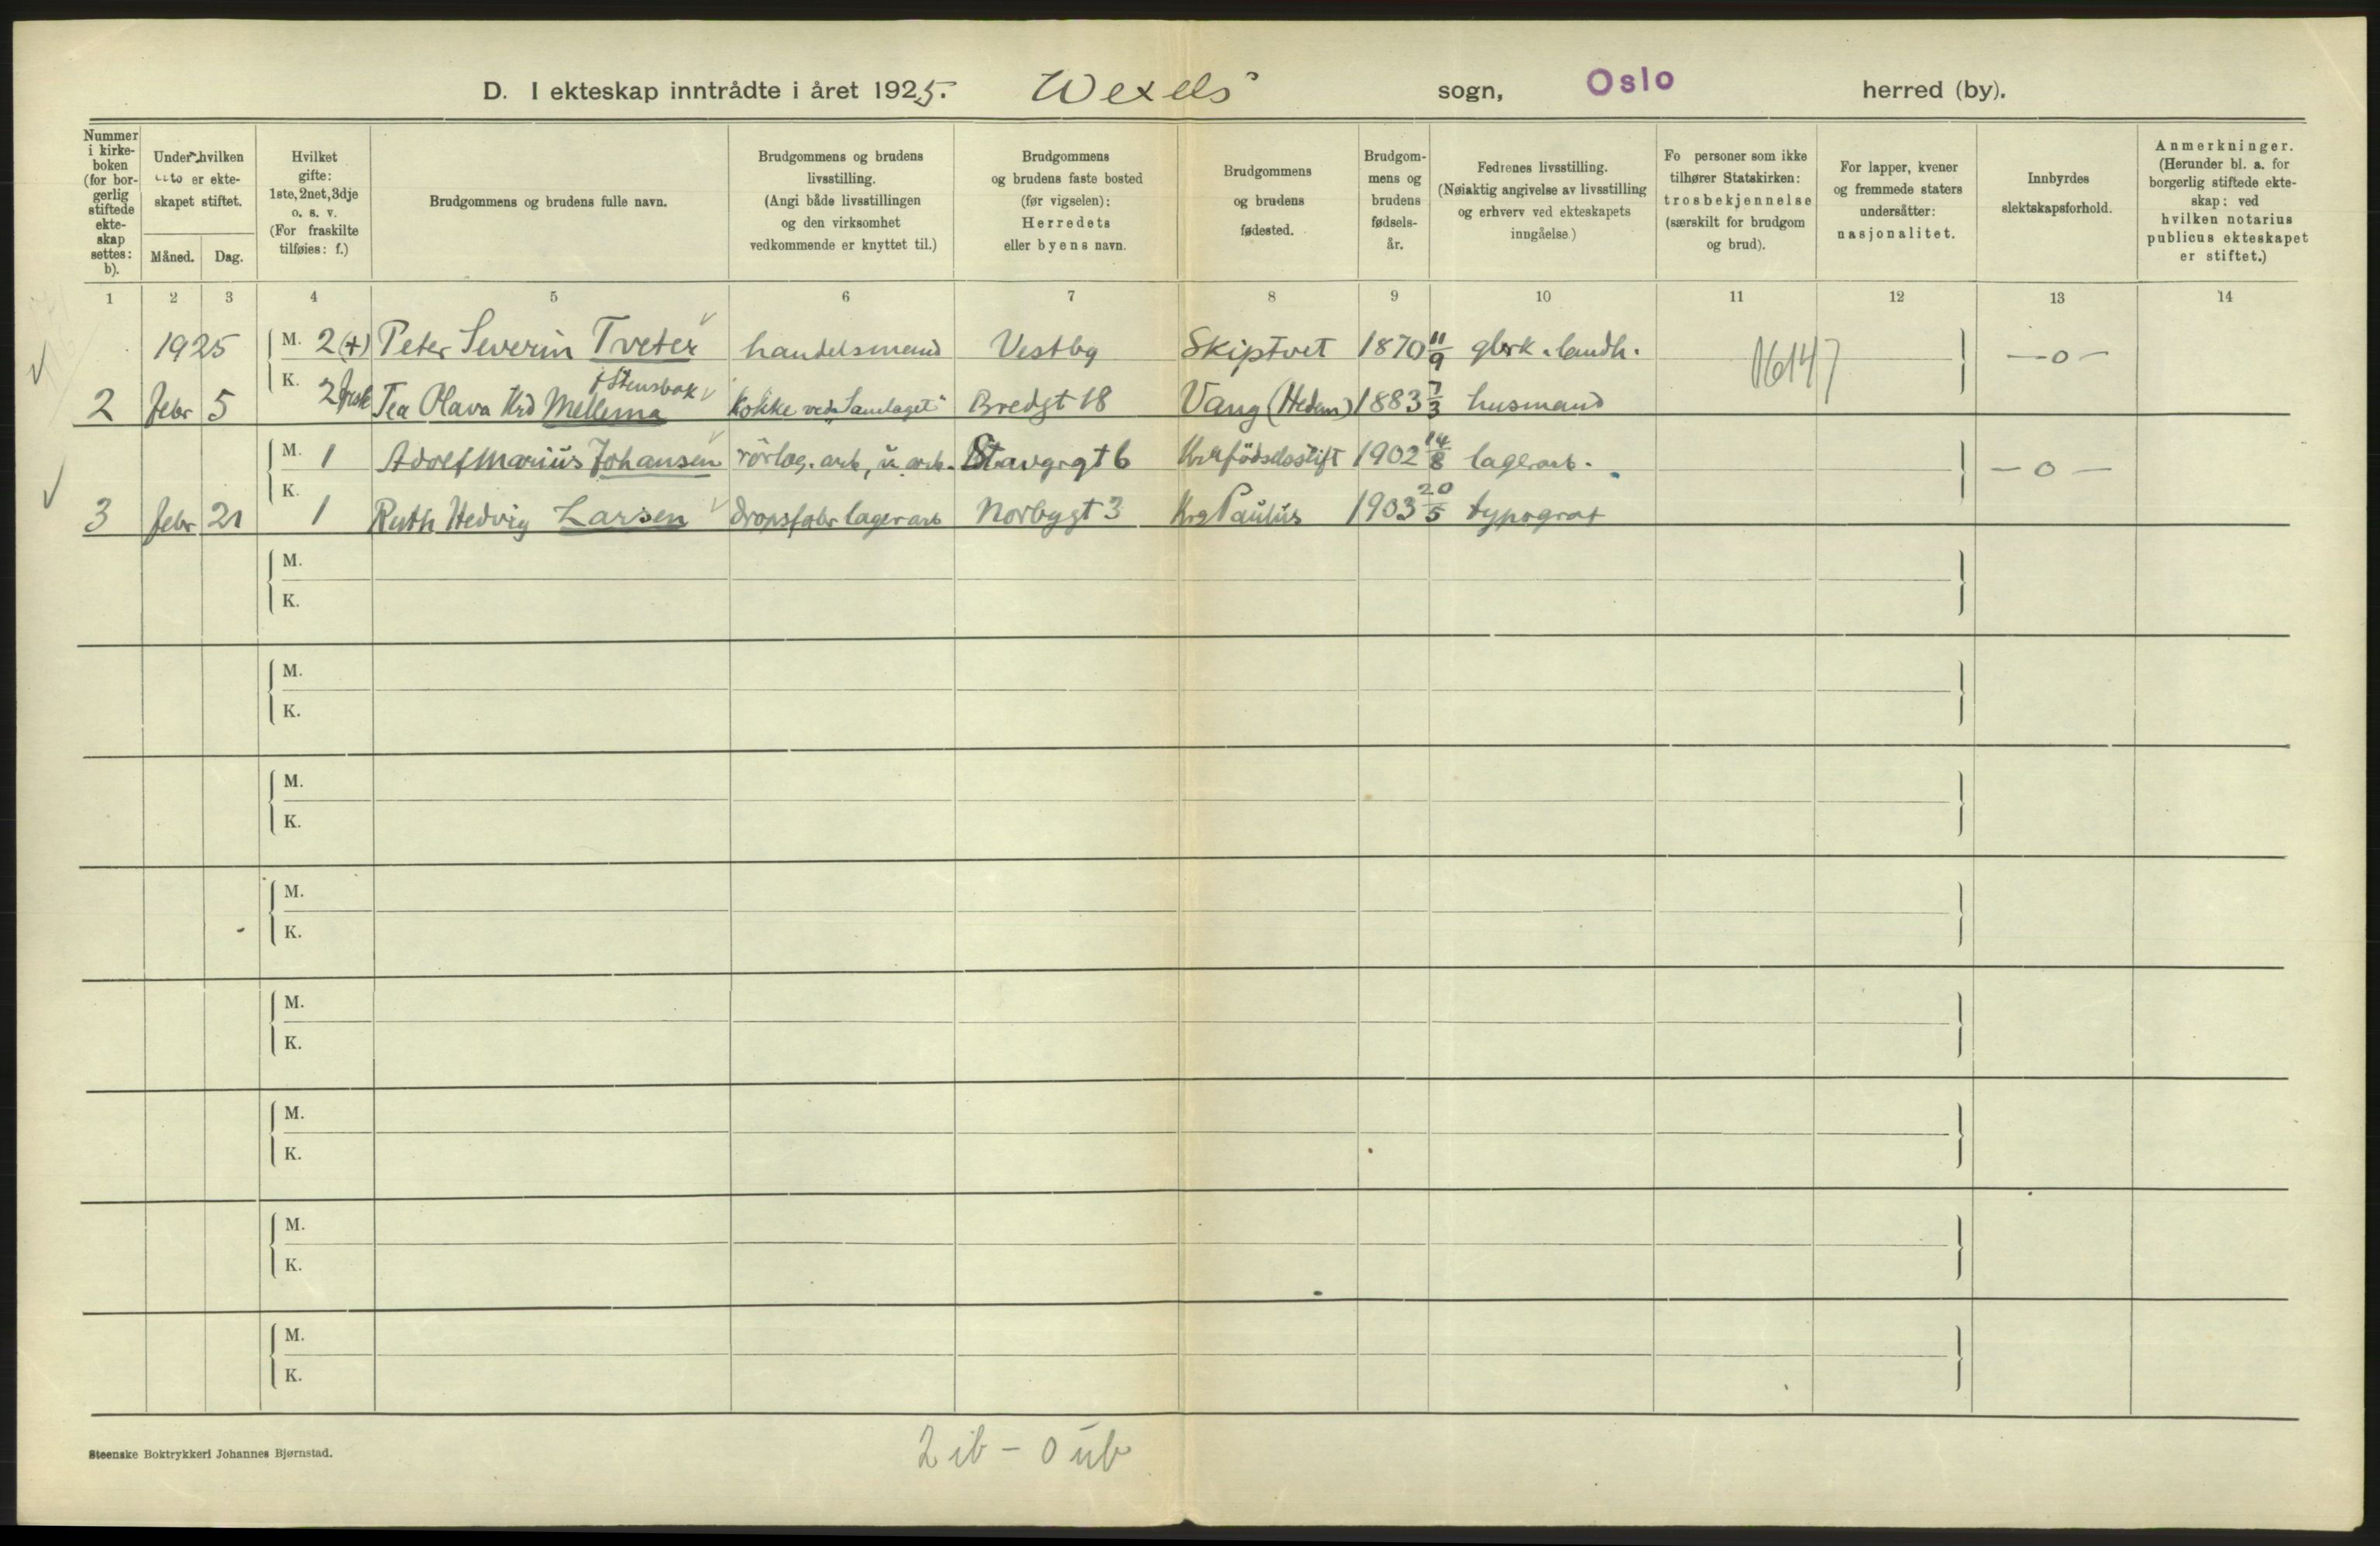 D. I ekteskap inntrådte i året 1925. Wexels sogn, Oslo herred (by).
Nummer i kirkeboken (for borgerlig stiftede ekteskap settes: b).
Under hvilken dato er ekteskapet stiftet.
Måned. Dag.
Hvilket gifte: 1ste, 2net, 3dje o. s. v. (For fraskilte tilføies: f.)
Brudgommens og brudens fulle navn.
Brudgommens og brudens livsstilling. (Angi både livsstillingen og den virksomhet vedkommende er knyttet til.)
Brudgommens og brudens faste bosted (før vigselen): Herredets eller byens navn.
Brudgommens og brudens fødested.
Brudgommens og brudens fødselsår.
Fedrenes livsstilling. (Nøiaktig angivelse av livsstilling og erhverv ved ekteskapets inngåelse)
Fo personer som ikke tilhører Statskirken: trosbekjennelse (særskilt for brudgom og brud).
For lapper, kvener og fremmede staters undersåtter: nasjonalitet.
Innbyrdes slektskapsforhold.
Anmerkninger. (Herunder bl. a. for borgerlig stiftede ekteskap: ved hvilken notarius publicus ekteskapet er stiftet.)
1 2 3 4 5 6 7 8 9 10 11 12 13 14
1925 M. 2(+) Peter Severin Tveter handelsmand Vestby Skiptvet 1870 11/9 gbrk. landh. 16147 —0—
2 Febr 5 K. 2 frsk Tea Olava Krd Mellema f Stensbak kokke ved "Samlaget" Bredgt 18 Vang (Hedem) 1883 7/3 husmand
M. 1 Adolf Marius Johansen rörlæg. arb, u. arb. Stavgrgt 6 Kra födselsstift 1902 14/8 lagerarb. —0—
3 febr 21 K. 1 Ruth Hedvig Larsen dropsfabr lagerarb Norbygt 3 Paulus 1903 20/5 typograf
M.
K.
M.
K.
M.
K.
M.
K.
M.
K.
M.
K.
M.
K.
M.
K.
Steenske Boktrykkeri Johannes Bjørnstad.
2 ib – 0 ub